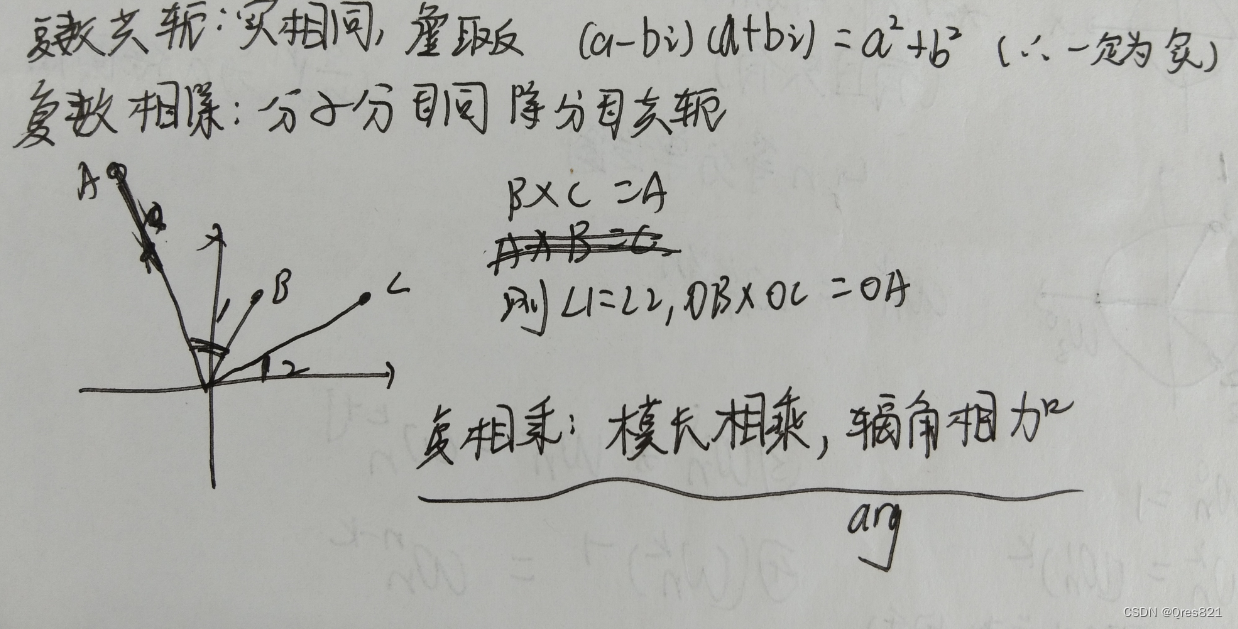 复数共轭:实相同,虚取反 (a-bi)(a+bi)=a²+b² (∴一定为实)
复数相除:分子分母同除分母共轭
A
B
C
1
2
B×C=A
A×B=C
则∠1=∠2,OB×OC=OA
复相乘:模长相乘,辐角相加
arg
CSDN @Qres821